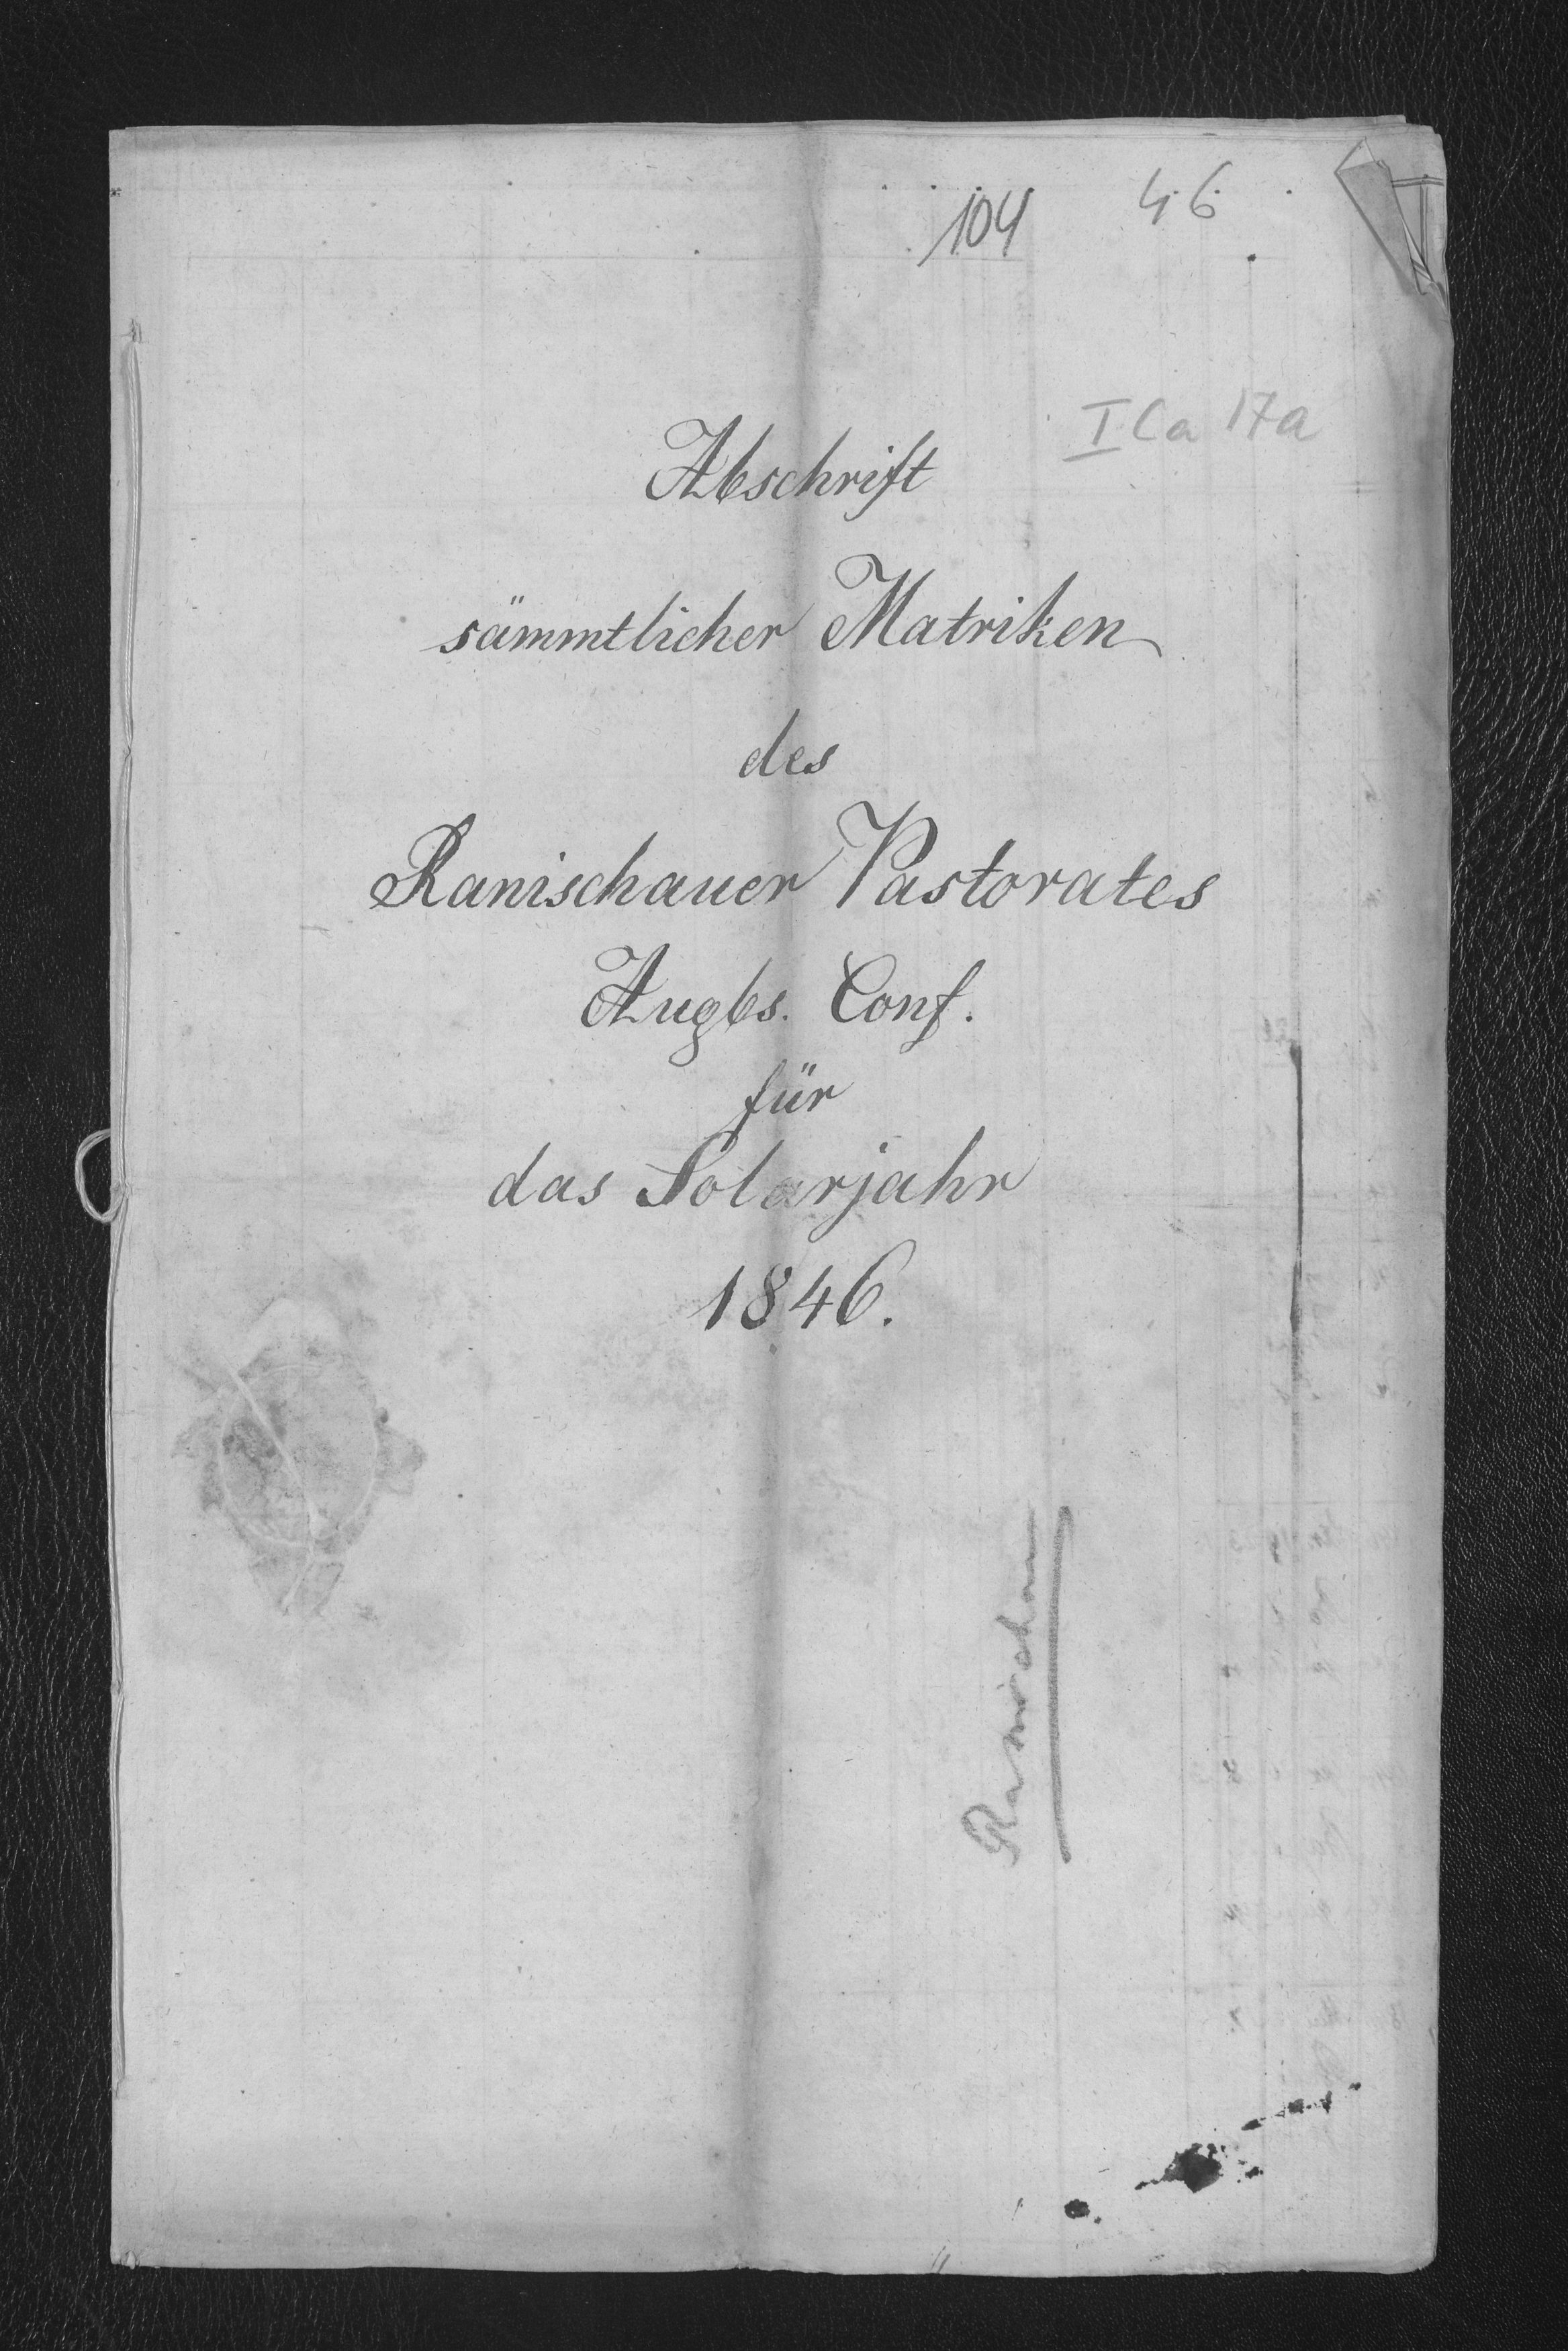 104 46
I Ca 17a
Abschrift
sämmtlicher Matriken
des
Ranischauer Pastorates
Augbs. Conf.
für
das Solarjahr
1846.
Ranischau